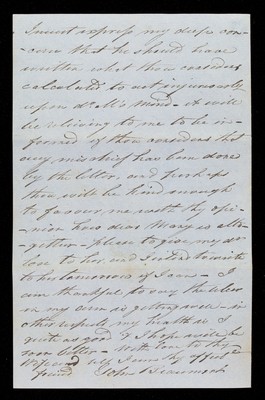 I must express my deep con-
-cern that he should have
written what thou considers
calculated to act injuriously
upon dr M's mind - It will
be relieving to me to be in-
formed if thou considers that
any mischief has been done
by the letter. and perhaps
thou wilt be kind enough
to favour me with thy opi-
nion how dear Mary is alto-
gether - please to give my dr
love to her, and I intend to write
to her tomorrow if I can - I
am thankful to say the
in my arm is getting - in
other respects my health is
quite as good & I hope will be
soon better - With love to thy
Wife and self I am thy affecte
friend John Beaumont